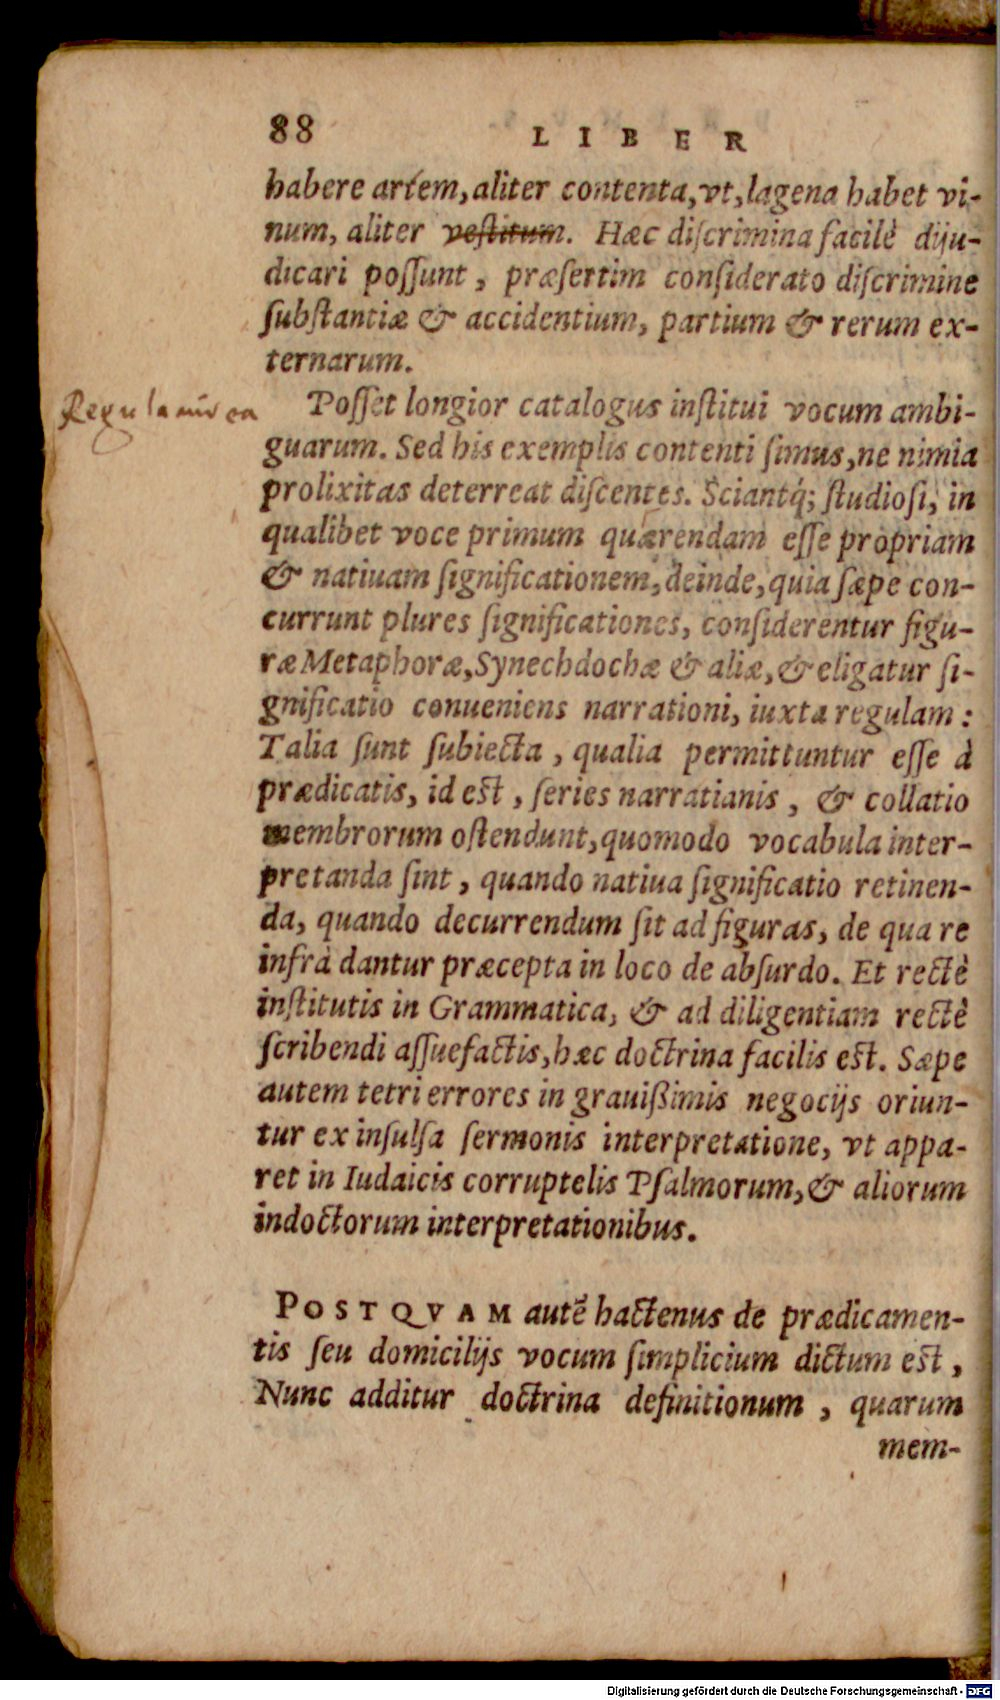 88 LIBER
habere artem, aliter contenta, vt, lagena habet vi-
num, aliter vestitum. Hæc discrimina facilè diju-
dicari possunt, præsertim considerato discrimine
substantiæ & accidentium, partium & rerum ex-
ternarum.
Posset longior catalogus institui vocum ambi-
guarum. Sed his exemplis contenti simus, ne nimia
prolixitas deterreat discentes. Sciantq́; studiosi, in
qualibet voce primum quærendam esse propriam
& natiuam significationem, deinde, quia sæpe con-
currunt plures significationes, considerentur figu-
ræ Metaphoræ, Synechdochæ & aliæ, & eligatur si-
gnificatio conueniens narrationi, iuxta regulam:
Talia sunt subiecta, qualia permittuntur esse à
prædicatis, id est, series narratianis, & collatio
membrorum ostendunt, quomodo vocabula inter-
pretanda sint, quando natiua significatio retinen-
da, quando decurrendum sit ad figuras, de qua re
infrà dantur præcepta in loco de absurdo. Et rectè
institutis in Grammatica, & ad diligentiam rectè
scribendi assuefactis, hæc doctrina facilis est. Sæpe
autem tetri errores in grauißimis negocijs oriun-
tur ex insulsa sermonis interpretatione, vt appa-
ret in Iudaicis corruptelis Psalmorum, & aliorum
indoctorum interpretationibus.
POSTQVAM autē hactenus de prædicamen-
tis seu domicilijs vocum simplicium dictum est,
Nunc additur doctrina definitionum, quarum
mem-
Regula
Digitalisierung gefördert durch die Deutsche Forschungsgemeinschaft - DFG